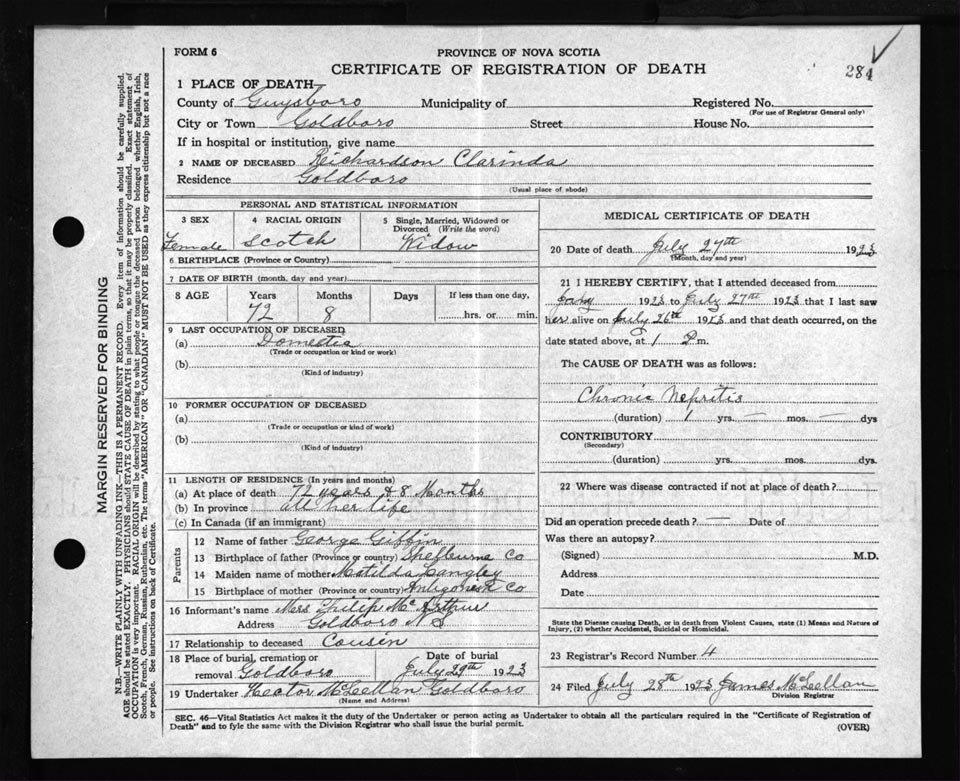 284
FORM 6
PROVINCE OF NOVA SCOTIA
CERTIFICATE OF REGISTRATION OF DEATH
MARGIN RESERVED FOR BINDING
N.B.—WRITE PLAINLY WITH UNFADING INK—THIS IS A PERMANENT RECORD. Every item of information should be carefully supplied.
AGE should be stated EXACTLY. PHYSICIANS should STATE CAUSE OF DEATH in plain terms, so that it may be properly classified. Exact statement of
OCCUPATION is very important. RACIAL ORIGIN will be described by stating to what people or tongue the deceased person belonged whether English, Irish,
Scotch, French, German, Russian, Ruthenian, etc. The terms "AMERICAN" OR "CANADIAN" MUST NOT BE USED as they express citizenship but not a race
or people. See instructions on back of Certificate.
1 PLACE OF DEATH
County of Guysboro Municipality of Registered No.
(For use of Registrar General only)
City or Town Goldboro Street House No.
If in hospital or institution, give name
2 NAME OF DECEASED Reichardson Clarinda
Residence Goldboro
(Usual place of abode)
PERSONAL AND STATISTICAL INFORMATION
3 SEX 4 RACIAL ORIGIN 5 Single, Married, Widowed or
Divorced (Write the word)
Female Scotch Widow
6 BIRTHPLACE (Province or Country)
7 DATE OF BIRTH (month, day and year)
8 AGE Years Months Days If less than one day,
72 8 hrs. or min.
9 LAST OCCUPATION OF DECEASED
(a) Domestic
(Trade or occupation or kind or work)
(b)
(Kind of industry)
10 FORMER OCCUPATION OF DECEASED
(a)
(Trade or occupation or kind of work)
(b)
(Kind of industry)
11 LENGTH OF RESIDENCE (In years and months)
(a) At place of death 72 years & 8 Months
(b) In province all her life
(c) In Canada (if an immigrant)
Parents
12 Name of father George Giffin
13 Birthplace of father (Province or country) Shelburne Co
14 Maiden name of mother Matilda Langley
15 Birthplace of mother (Province or country) Antigonish Co
16 Informant's name Mrs Philip McArthur
Address Goldboro N S
17 Relationship to deceased Cousin
18 Place of burial, cremation or Date of burial
removal Goldboro July 29th 1923
19 Undertaker Heator McLellan Goldboro
(Name and Address)
MEDICAL CERTIFICATE OF DEATH
20 Date of death July 27th 1923
(Month, day and year)
21 I HEREBY CERTIFY, that I attended deceased from
1923 to July 27th 1923 that I last saw
her alive on July 26th 1923 and that death occurred, on the
date stated above, at 1 P m.
The CAUSE OF DEATH was as follows:
Chronic Nefritis
(duration) 1 yrs. — mos. dys
CONTRIBUTORY
(Secondary)
(duration) yrs. mos. dys
22 Where was disease contracted if not at place of death?
Did an operation precede death? — Date of
Was there an autopsy?
(Signed) M.D.
Address
Date
State the Disease causing Death, or in death from Violent Causes, state (1) Means and Nature of
Injury, (2) whether Accidental, Suicidal or Homicidal.
23 Registrar's Record Number 4
24 Filed July 28th 1923 James McLellan
Division Registrar
SEC. 46—Vital Statistics Act makes it the duty of the Undertaker or person acting as Undertaker to obtain all the particulars required in the "Certificate of Registration of
Death" and to fyle the same with the Division Registrar who shall issue the burial permit.
(OVER)